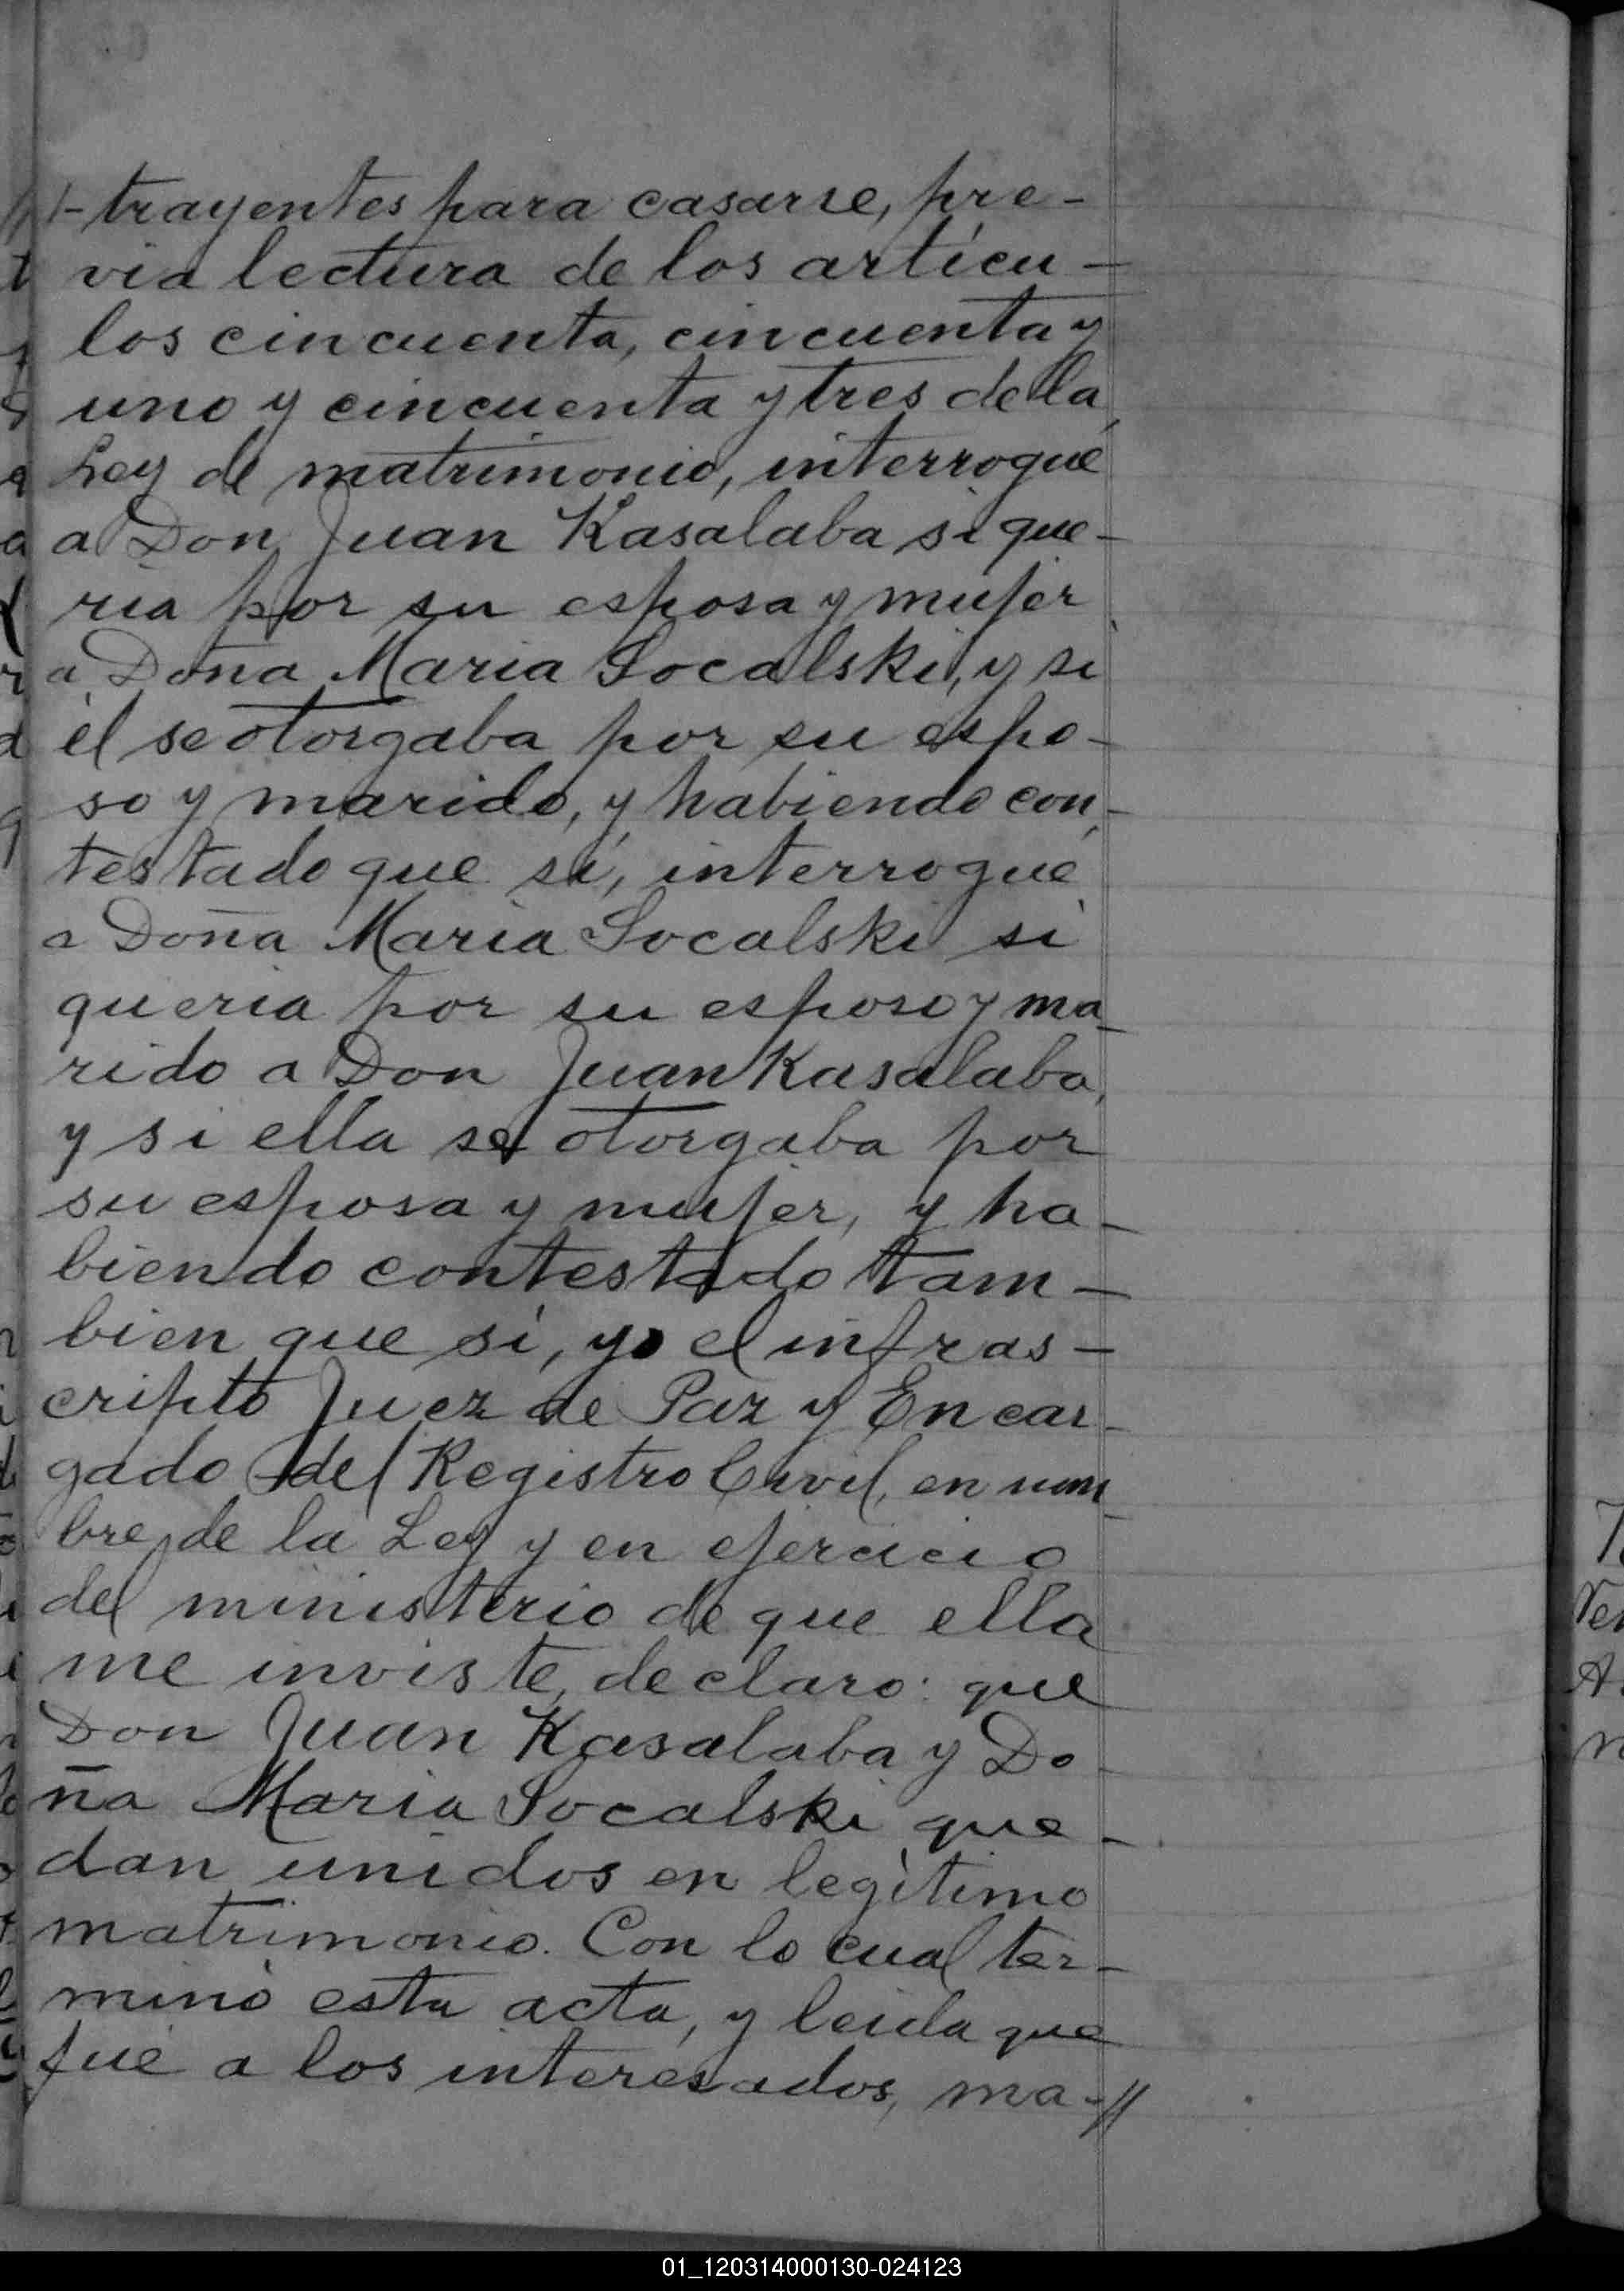 //-trayentes para casarse, pre-
via lectura de los artícu-
los cincuenta, cincuenta y
uno y cincuenta y tres de la
Ley de matrimonio, interrogué
a Don Juan Kasalaba si que-
ria por su esposa y mujer
a Doña Maria Socalski, y si
él se otorgaba por su espo-
so y marido, y habiendo con-
testado que sí, interrogué
a Doña Maria Socalski si
queria por su esposo y ma-
rido a Don Juan Kasalaba,
y si ella se otorgaba por
su esposa y mujer, y ha-
biendo contestado tam-
bien que sí, yo el infras-
cripto Juez de Paz y Encar-
gado del Registro Civil, en nom-
bre de la Ley y en ejercicio
del ministerio de que ella
me inviste, declaro: que
Don Juan Kasalaba y Do-
ña Maria Socalski que-
dan unidos en legítimo
matrimonio. Con lo cual ter-
minó esta acta, y leida que
fué a los interesados, ma-//
01_120314000130-024123